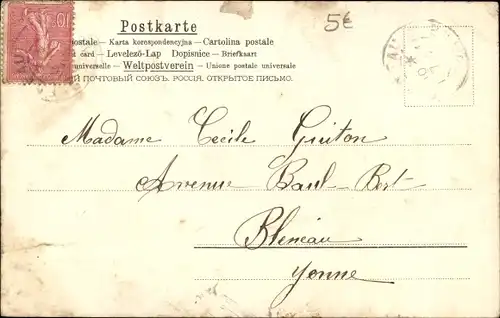 10
5€
Postkarte
postale – Karta korespondencyjna – Cartolina postale
card – Levelező-Lap Dopisnice – Briefkaart
universelle – Weltpostverein – Unione postale universale
ПОЧТОВЫЙ СОЮЗЪ. РОССІЯ. ОТКРЫТОЕ ПИСЬМО.
Madame Cecile Guiton
Avenue Baul-Bert
Bleneau
Yonne